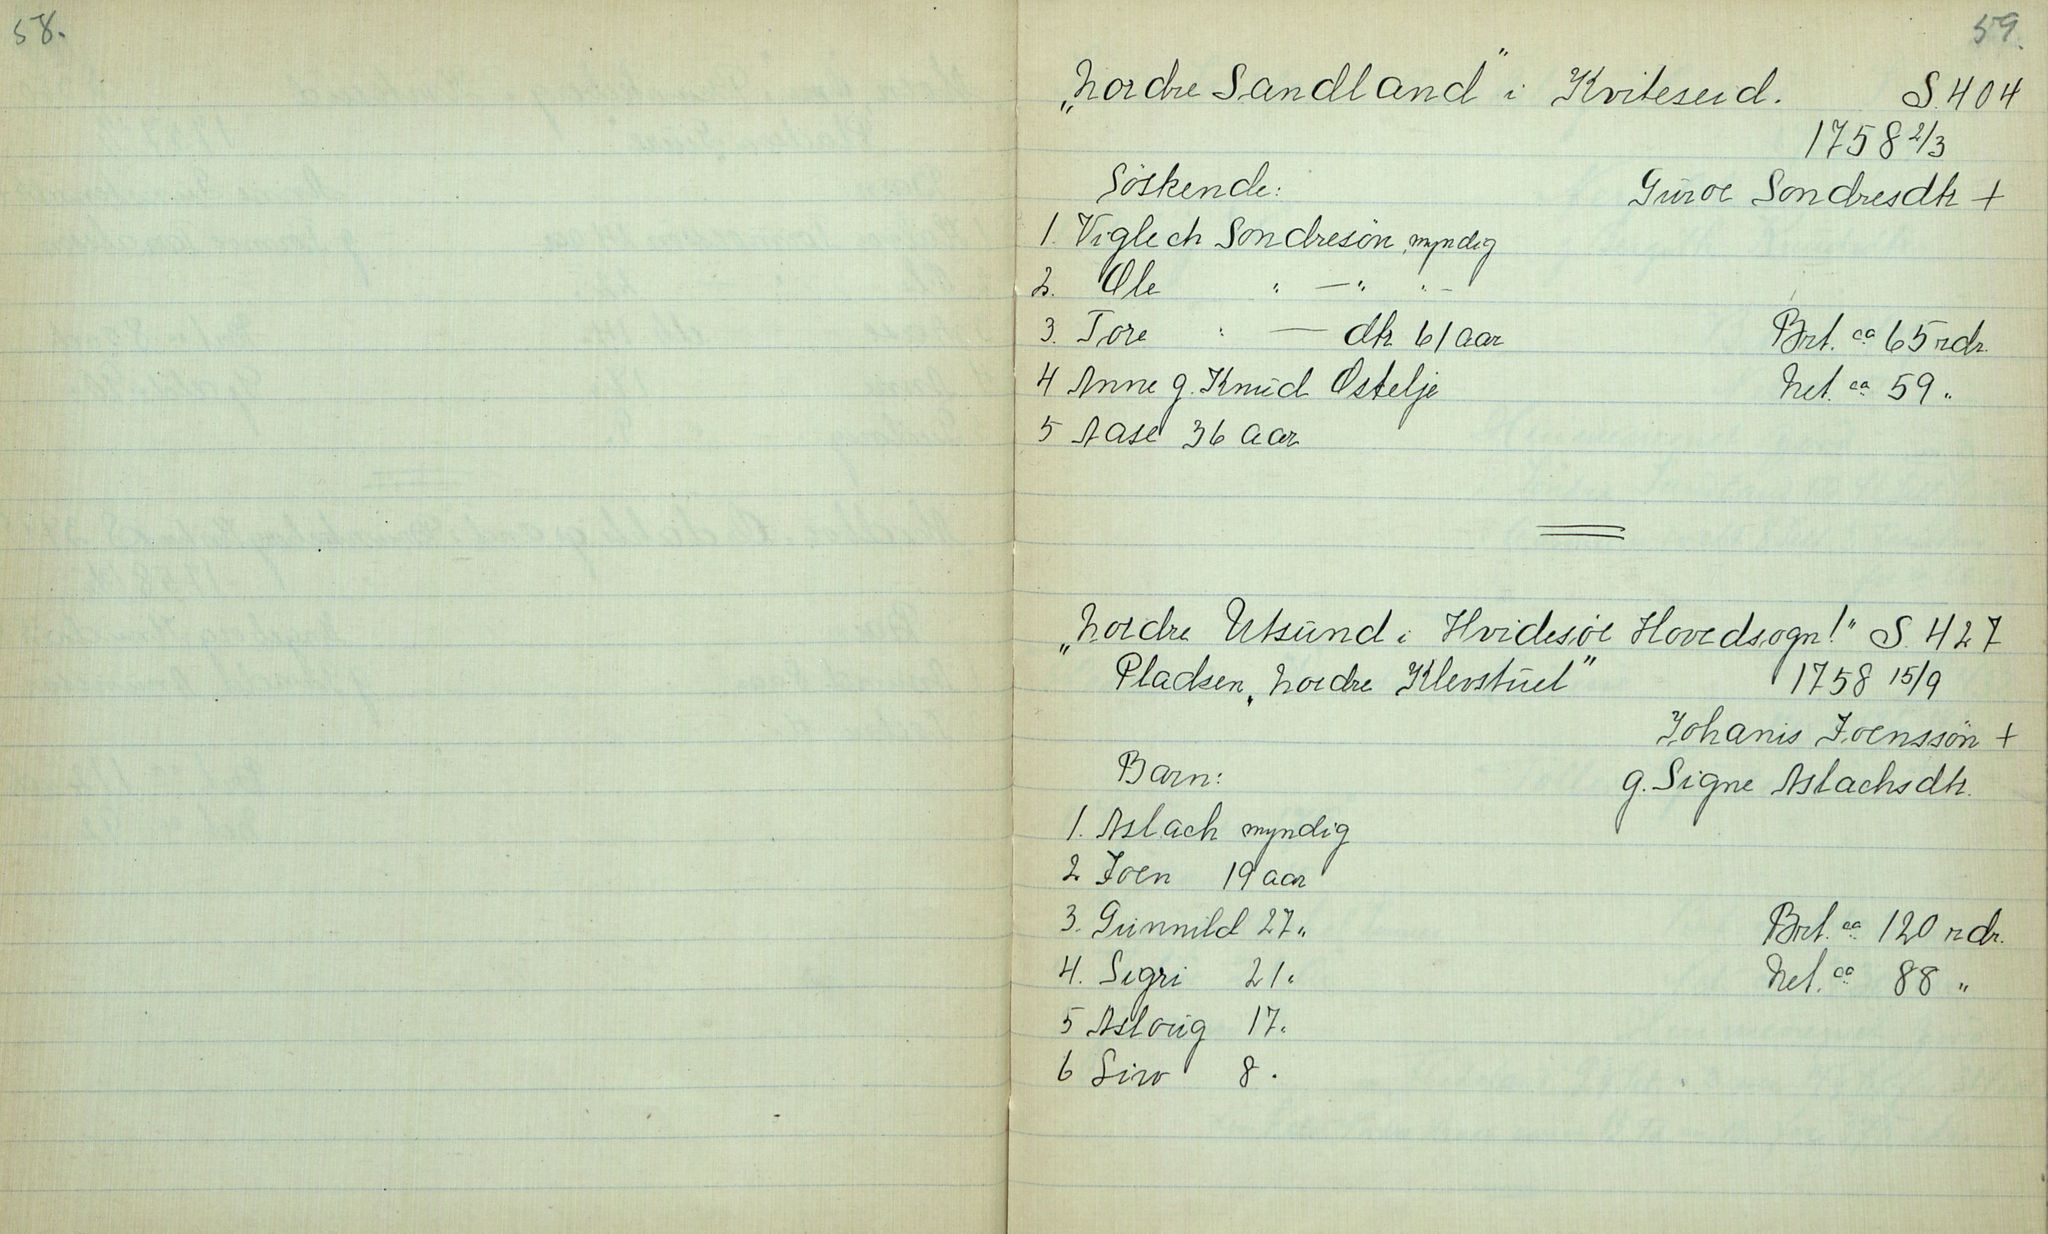 58.
59.
„Nordre Sandland" i Kviteseid. S. 404
1758 2/3
Söskende: Guroe Sondresdtr +
1. Viglech Sondresön myndig
2. Ole " —" " -
3. Tore " — dtr 61 aar Brt. ca 65 rdr.
4 Anne g. Knud Östelje Net. ca 59 "
5 Aase 36 aar
„Nordre Utsund i Hvidesöe Hovedsogn!" S. 427
Pladsen „Nordre Klevstuel" 1758 15/9
Johanis Joenssön +
Barn: g. Signe Aslachsdtr.
1. Aslach myndig
2 Joen 19 aar
3. Gunnild 27 " Brt. ca 120 rdr.
4. Sigri 21 " Net. ca 88 "
5 Asloug 17 "
6 Siro 8 "